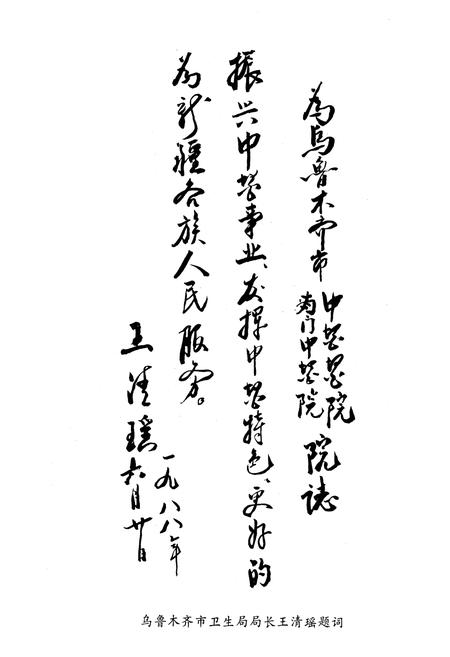 為烏魯木齐市
中醫醫院
南门中醫院
院誌
振兴中醫事业、发挥中醫特色、更好的
為新疆各族人民服务。
王清瑶
一九八八年
六月廿日
乌鲁木齐市卫生局局长王清瑶题词